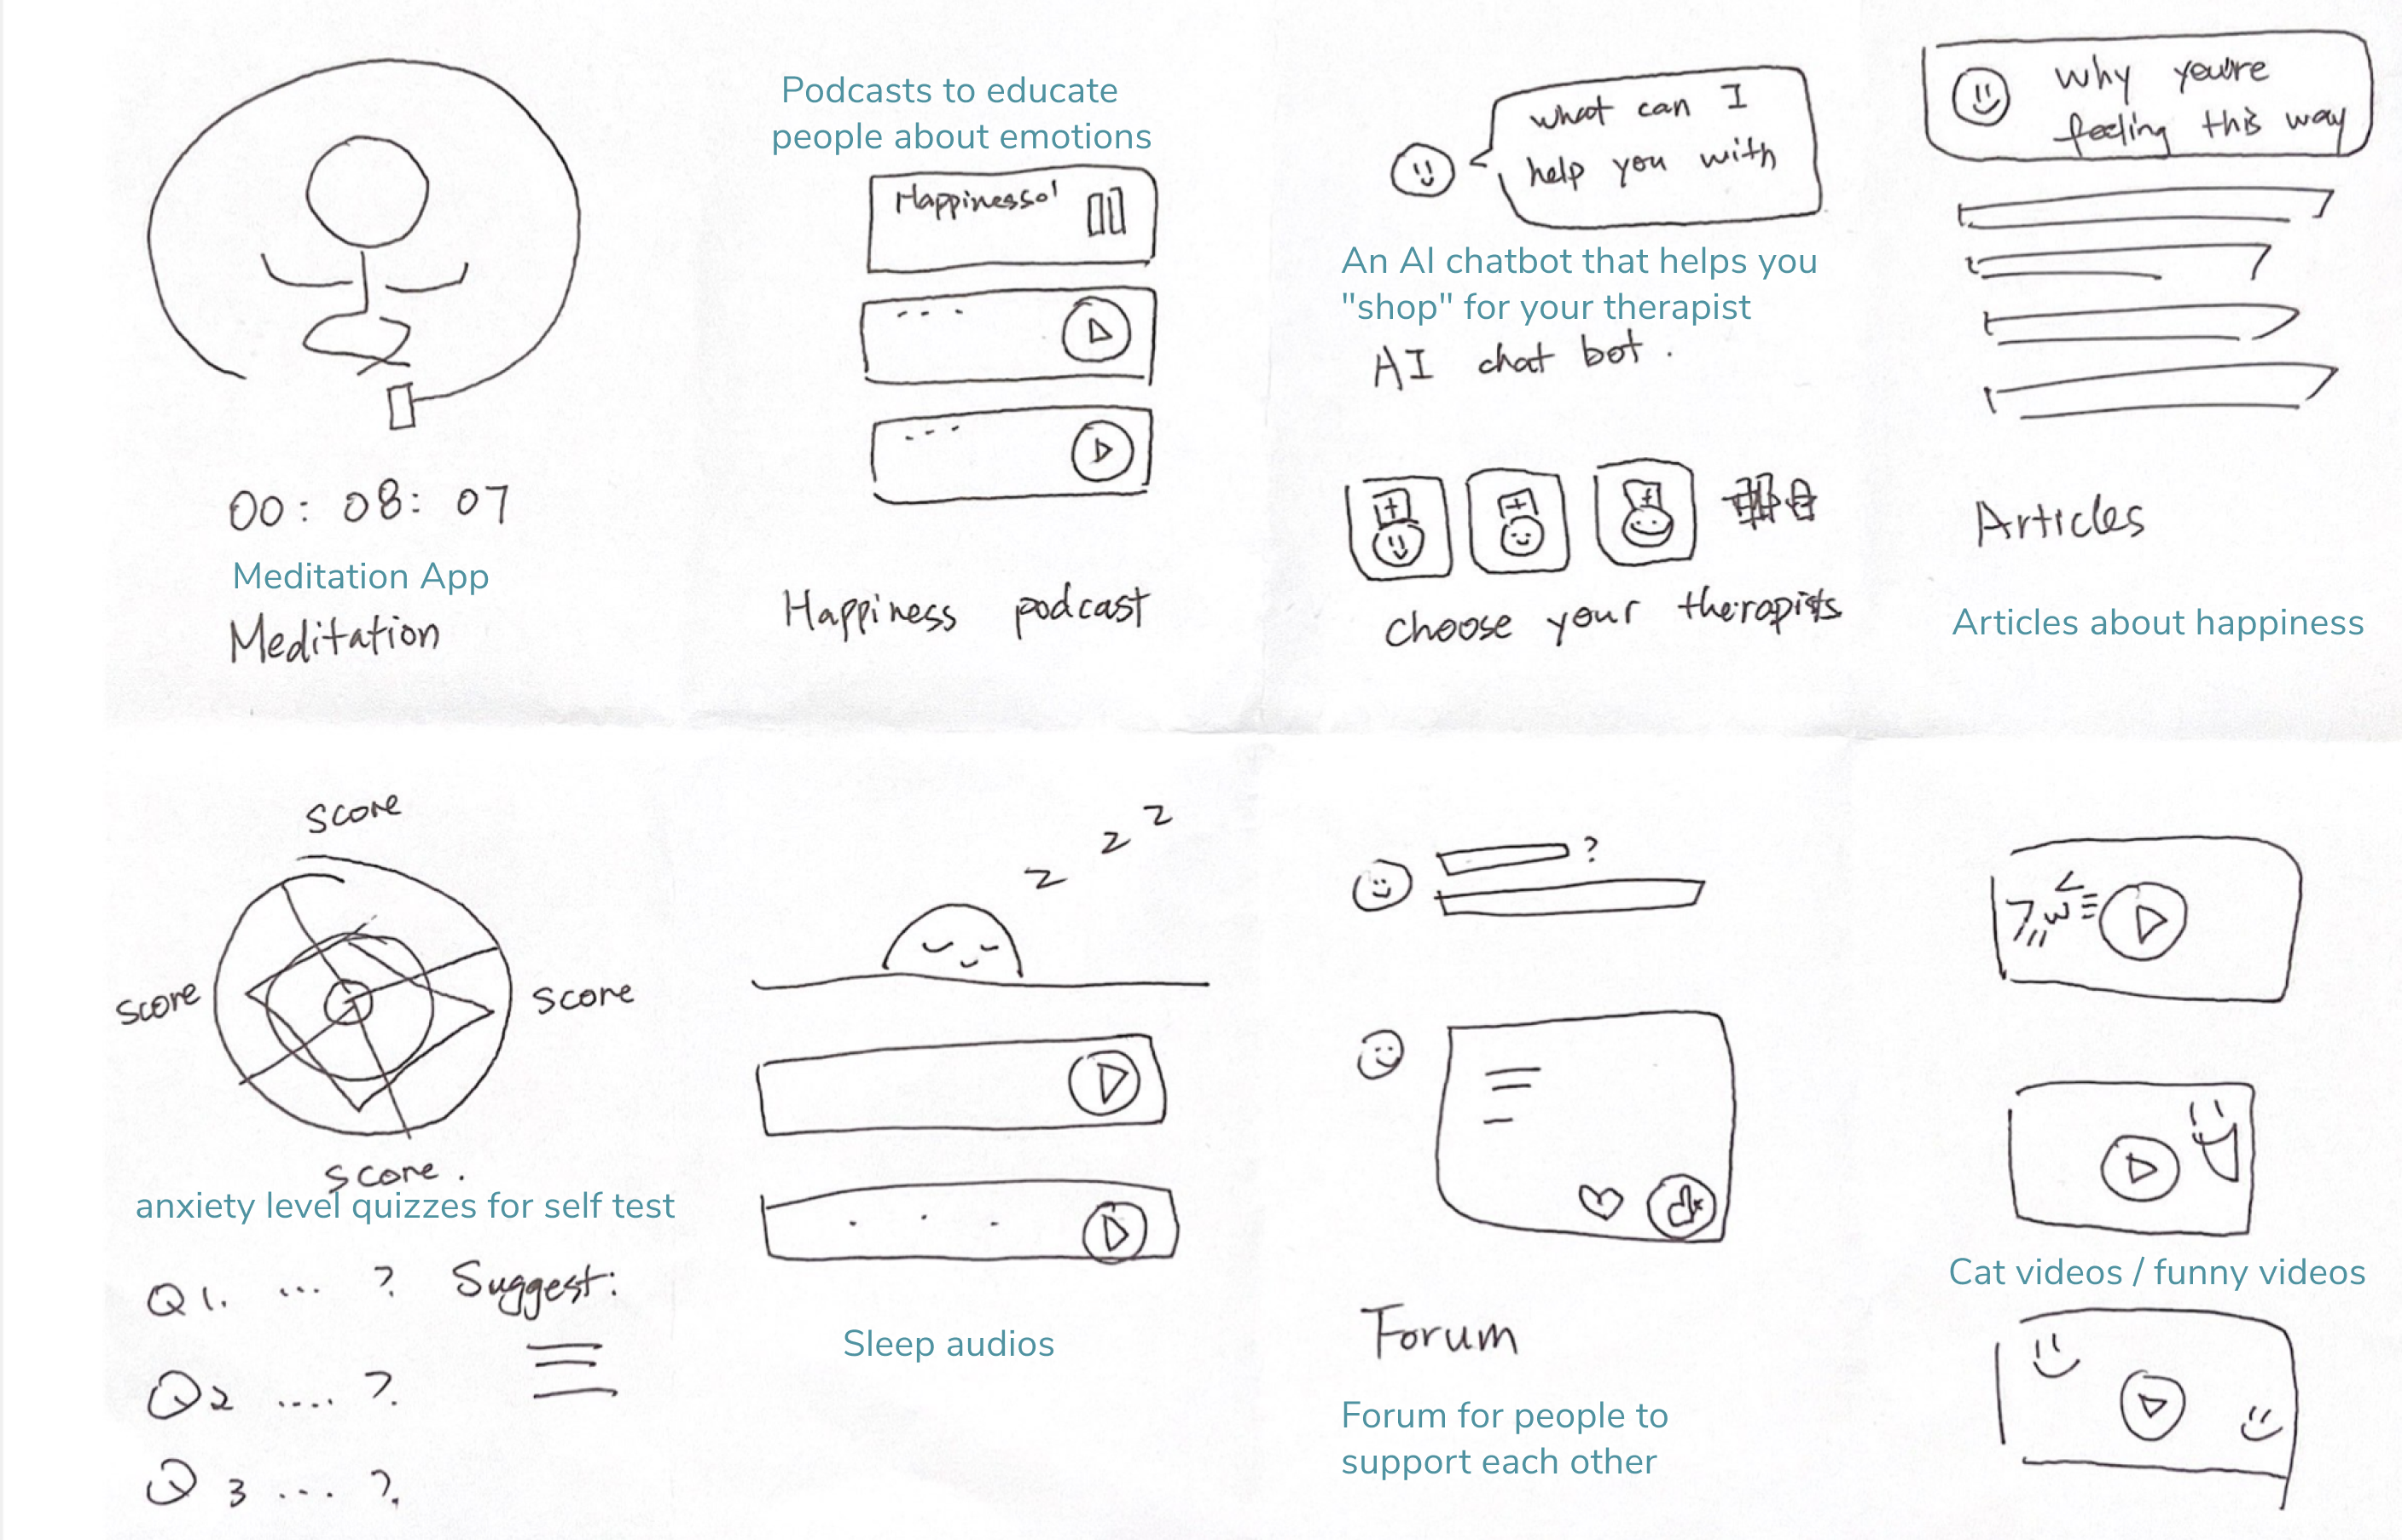 00: 08: 07
Meditation App
Meditation
Podcasts to educate
people about emotions
Happiness01
Happiness podcast
what can I
help you with
An AI chatbot that helps you
"shop" for your therapist
AI chat bot.
choose your therapists
why you're
feeling this way
Articles
Articles about happiness
score
score
score
score.
anxiety level quizzes for self test
Q1. ... ?
Suggest:
Q2 .... ?.
Q3 ... ?.
z z z
Sleep audios
?
Forum
Forum for people to
support each other
Cat videos / funny videos